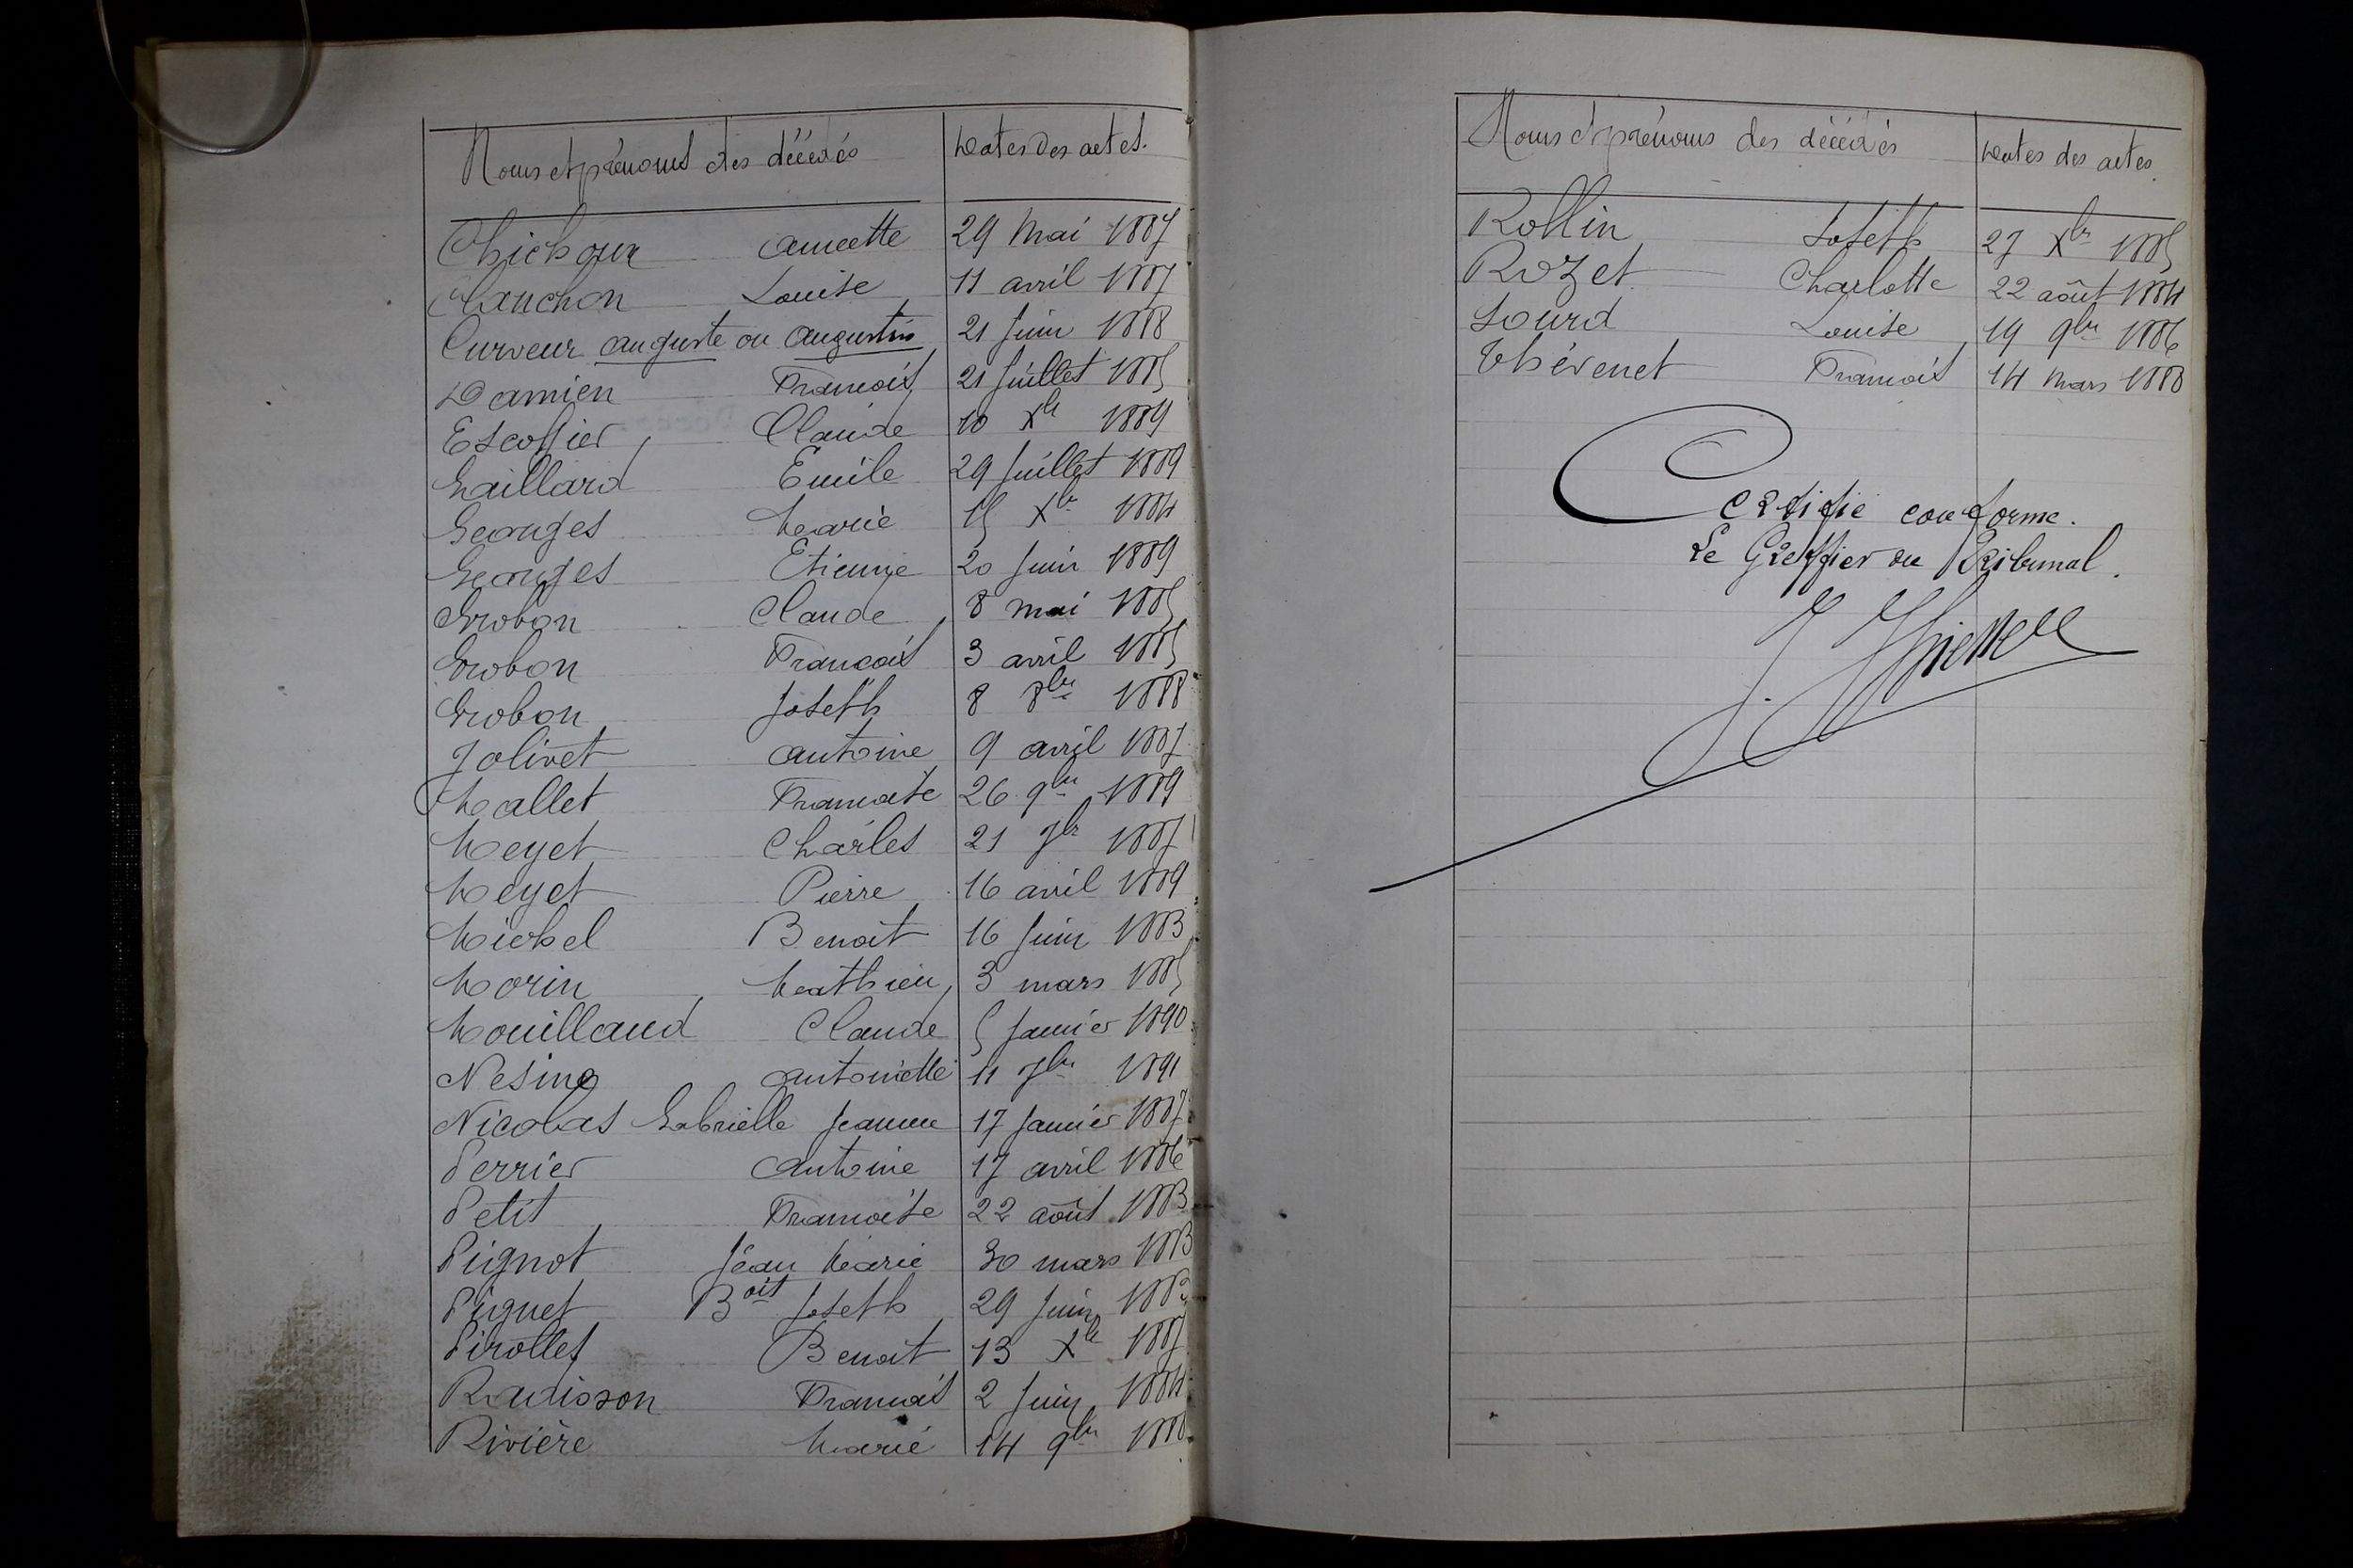 Noms et prénoms des décédés Dates des actes.
Annette 29 Mai 1887
Clanchon Louise 11 avril 1887
Curveur auguste ou augustin 21 Juin 1888
Damien François 21 Juillet 1885
Escoffier, Claude 10 Xbre 1889
Gaillard Emile 29 Juillet 1889
Georges Marie 15 Xbre 1884
Georges Etienne 20 Juin 1889
Grobon Claude 8 mai 1885
Grobon François 3 avril 1885
Grobon Joseph 8 8bre 1888
Jolivet antoine 9 avril 1887
Mallet Françoise 26 9bre 1889
Meyet Charles 21 7bre 1887
Meyet Pierre 16 avril 1889
Michel Benoit 16 Juin 1883
Morin Mathieu 3 mars 1885
Mouillaud Claude 5 Janvier 1890
Nesme antoinette 11 7bre 1891
Nicolas Gabrielle Jeanne 17 Janvier 1887
Perrier antoine 17 avril 1886
Petit Françoise 22 août 1883
Pignot Jean Marie 30 mars 1883
Piguet Boit Joseph 29 Juin
Pirollet Benoit 13 Xbre 1887
Radisson François 2 Juin 1884
Rivière Marie 14 9bre
Noms et prénoms des décédés Dates des actes.
Rollin Joseph 27 Xbre 1885
Rozet Charlotte 22 août 1884
Sourd Louise 19 9bre 1886
Thévenet François 14 mars 1888
Certifié conforme.
Le Greffier du Tribunal.